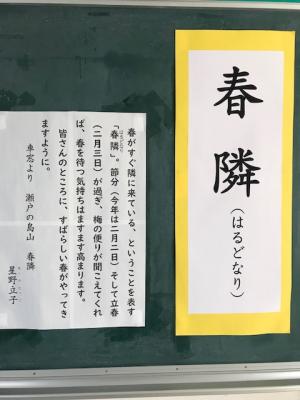 春隣
(はるどなり)
春がすぐ隣に来ている、ということを表す
「春隣」。節分(今年は二月二日)そして立春
(二月三日)が過ぎ、梅の便りが聞こえてくれ
ば、春を待つ気持ちはますます高まります。
皆さんのところに、すばらしい春がやってき
ますように。
車窓より 瀬戸の島山 春隣
星野立子